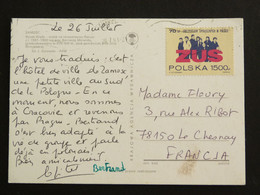 Le 26 Juillet
Je vous traduis : c'est
l'hôtel de ville de Zamosc
une petite ville au sud
de la Pologne - En ce
moment, nous sommes
à Cracovie et revenons
par Prague - Bertrand
s'est bien adapté à la
vie de groupe et parle
déjà le polonais !
Bien amicalement
Bertrand
ZUS
POLSKA 1500 zł
Madame Fleury
3, rue Alex Ribot
78150 Le Chesnay
FRANCJA